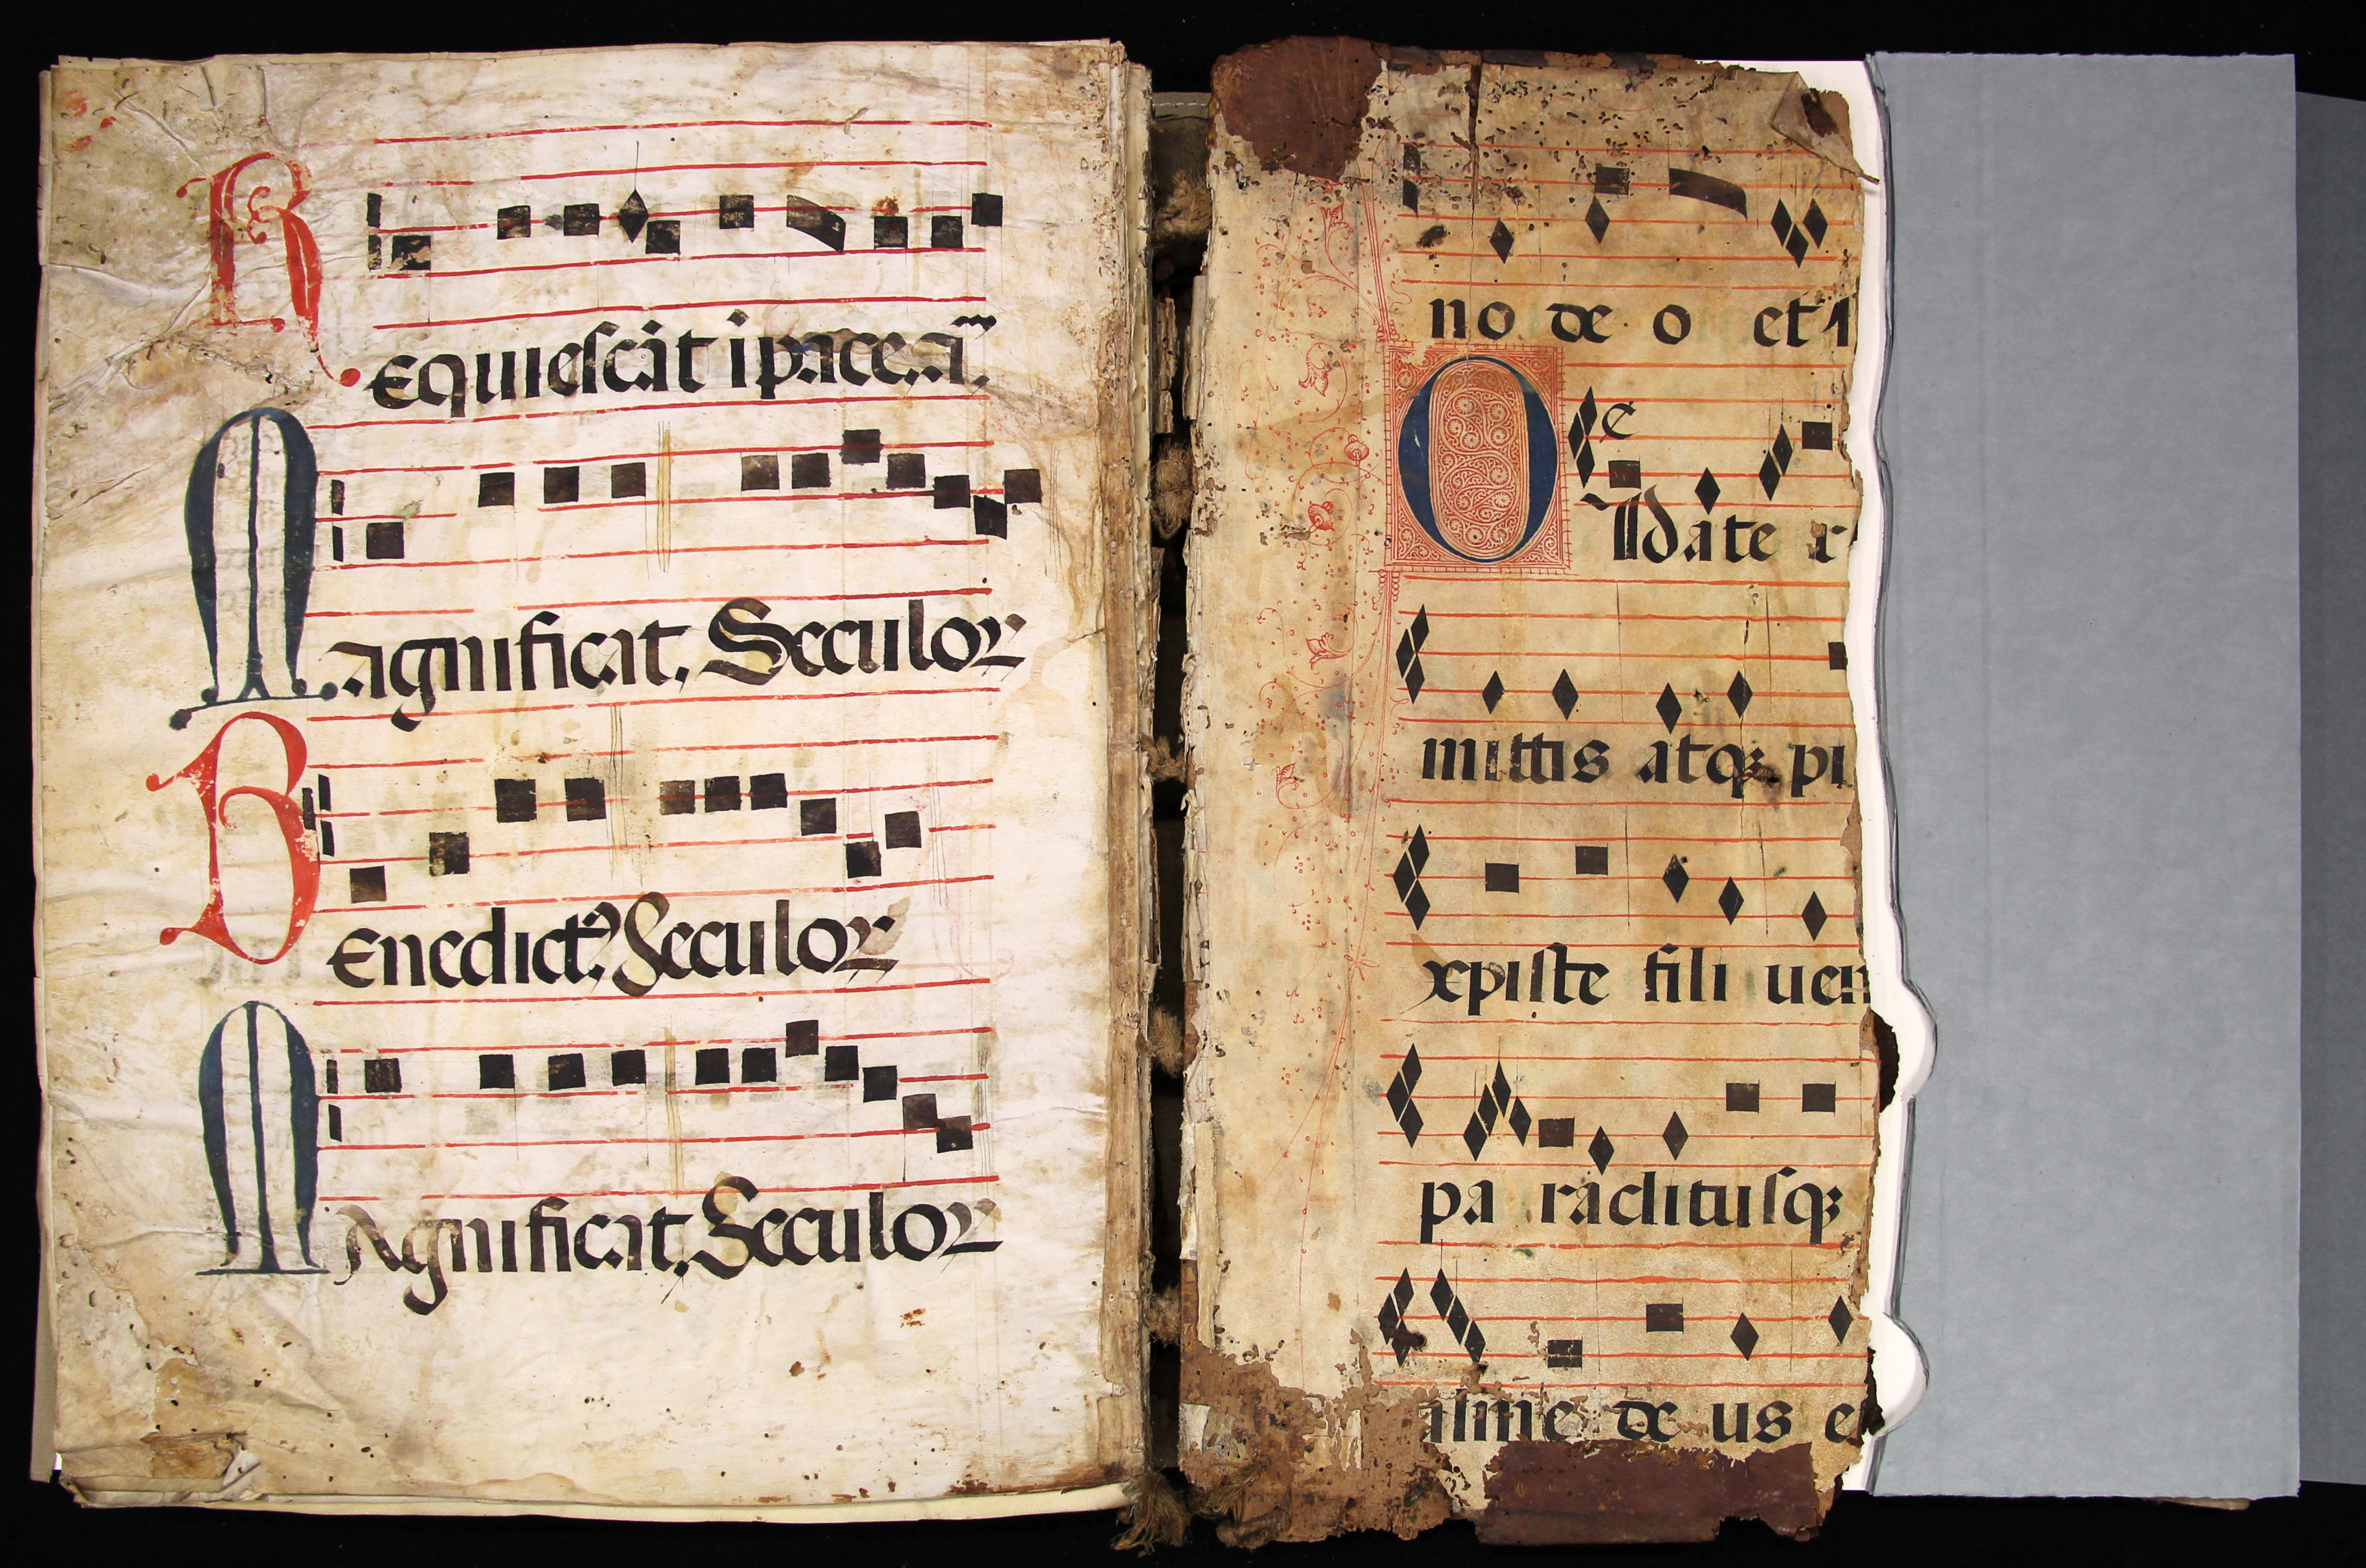 Requiescāt ī pace. am̄.
Magnificat. Seculoꝝ
Benedictꝰ. Seculoꝝ
Magnificat. Seculoꝝ
no de o et
e
date
mittis atqꝫ pi
xpiste fili uen
pa racditusqꝫ
alme de us e